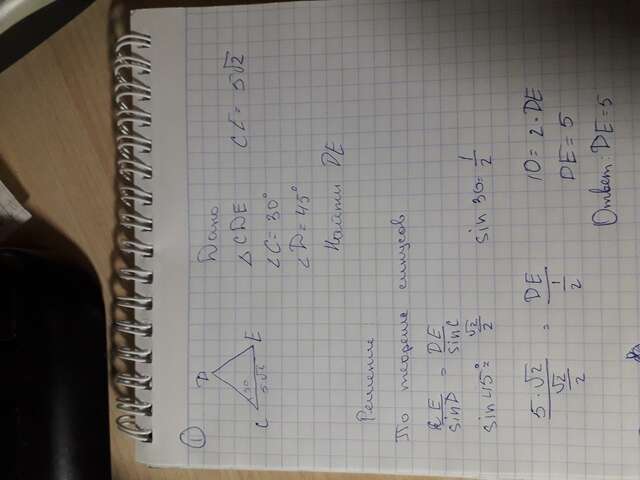 1
D
C
E
30
5√2
Дано
△CDE
CE = 5√2
∠C = 30°
∠D = 45°
Найти DE
Решение
По теореме синусов
CE/sinD = DE/sinC
sin 45° = √2/2
sin 30 = 1/2
5·√2/(√2/2) = DE/(1/2)
10 = 2·DE
DE = 5
Ответ: DE = 5